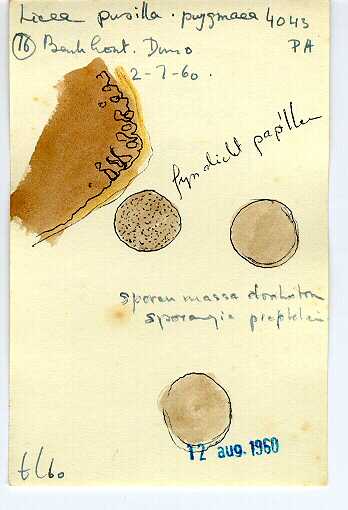 Licea pusilla · pygmaea 4043
16 Benkhont. Duno PA
2-7-60.
fyn dicht papillen
sporen massa donker
sporangia
12 aug. 1960
t/60